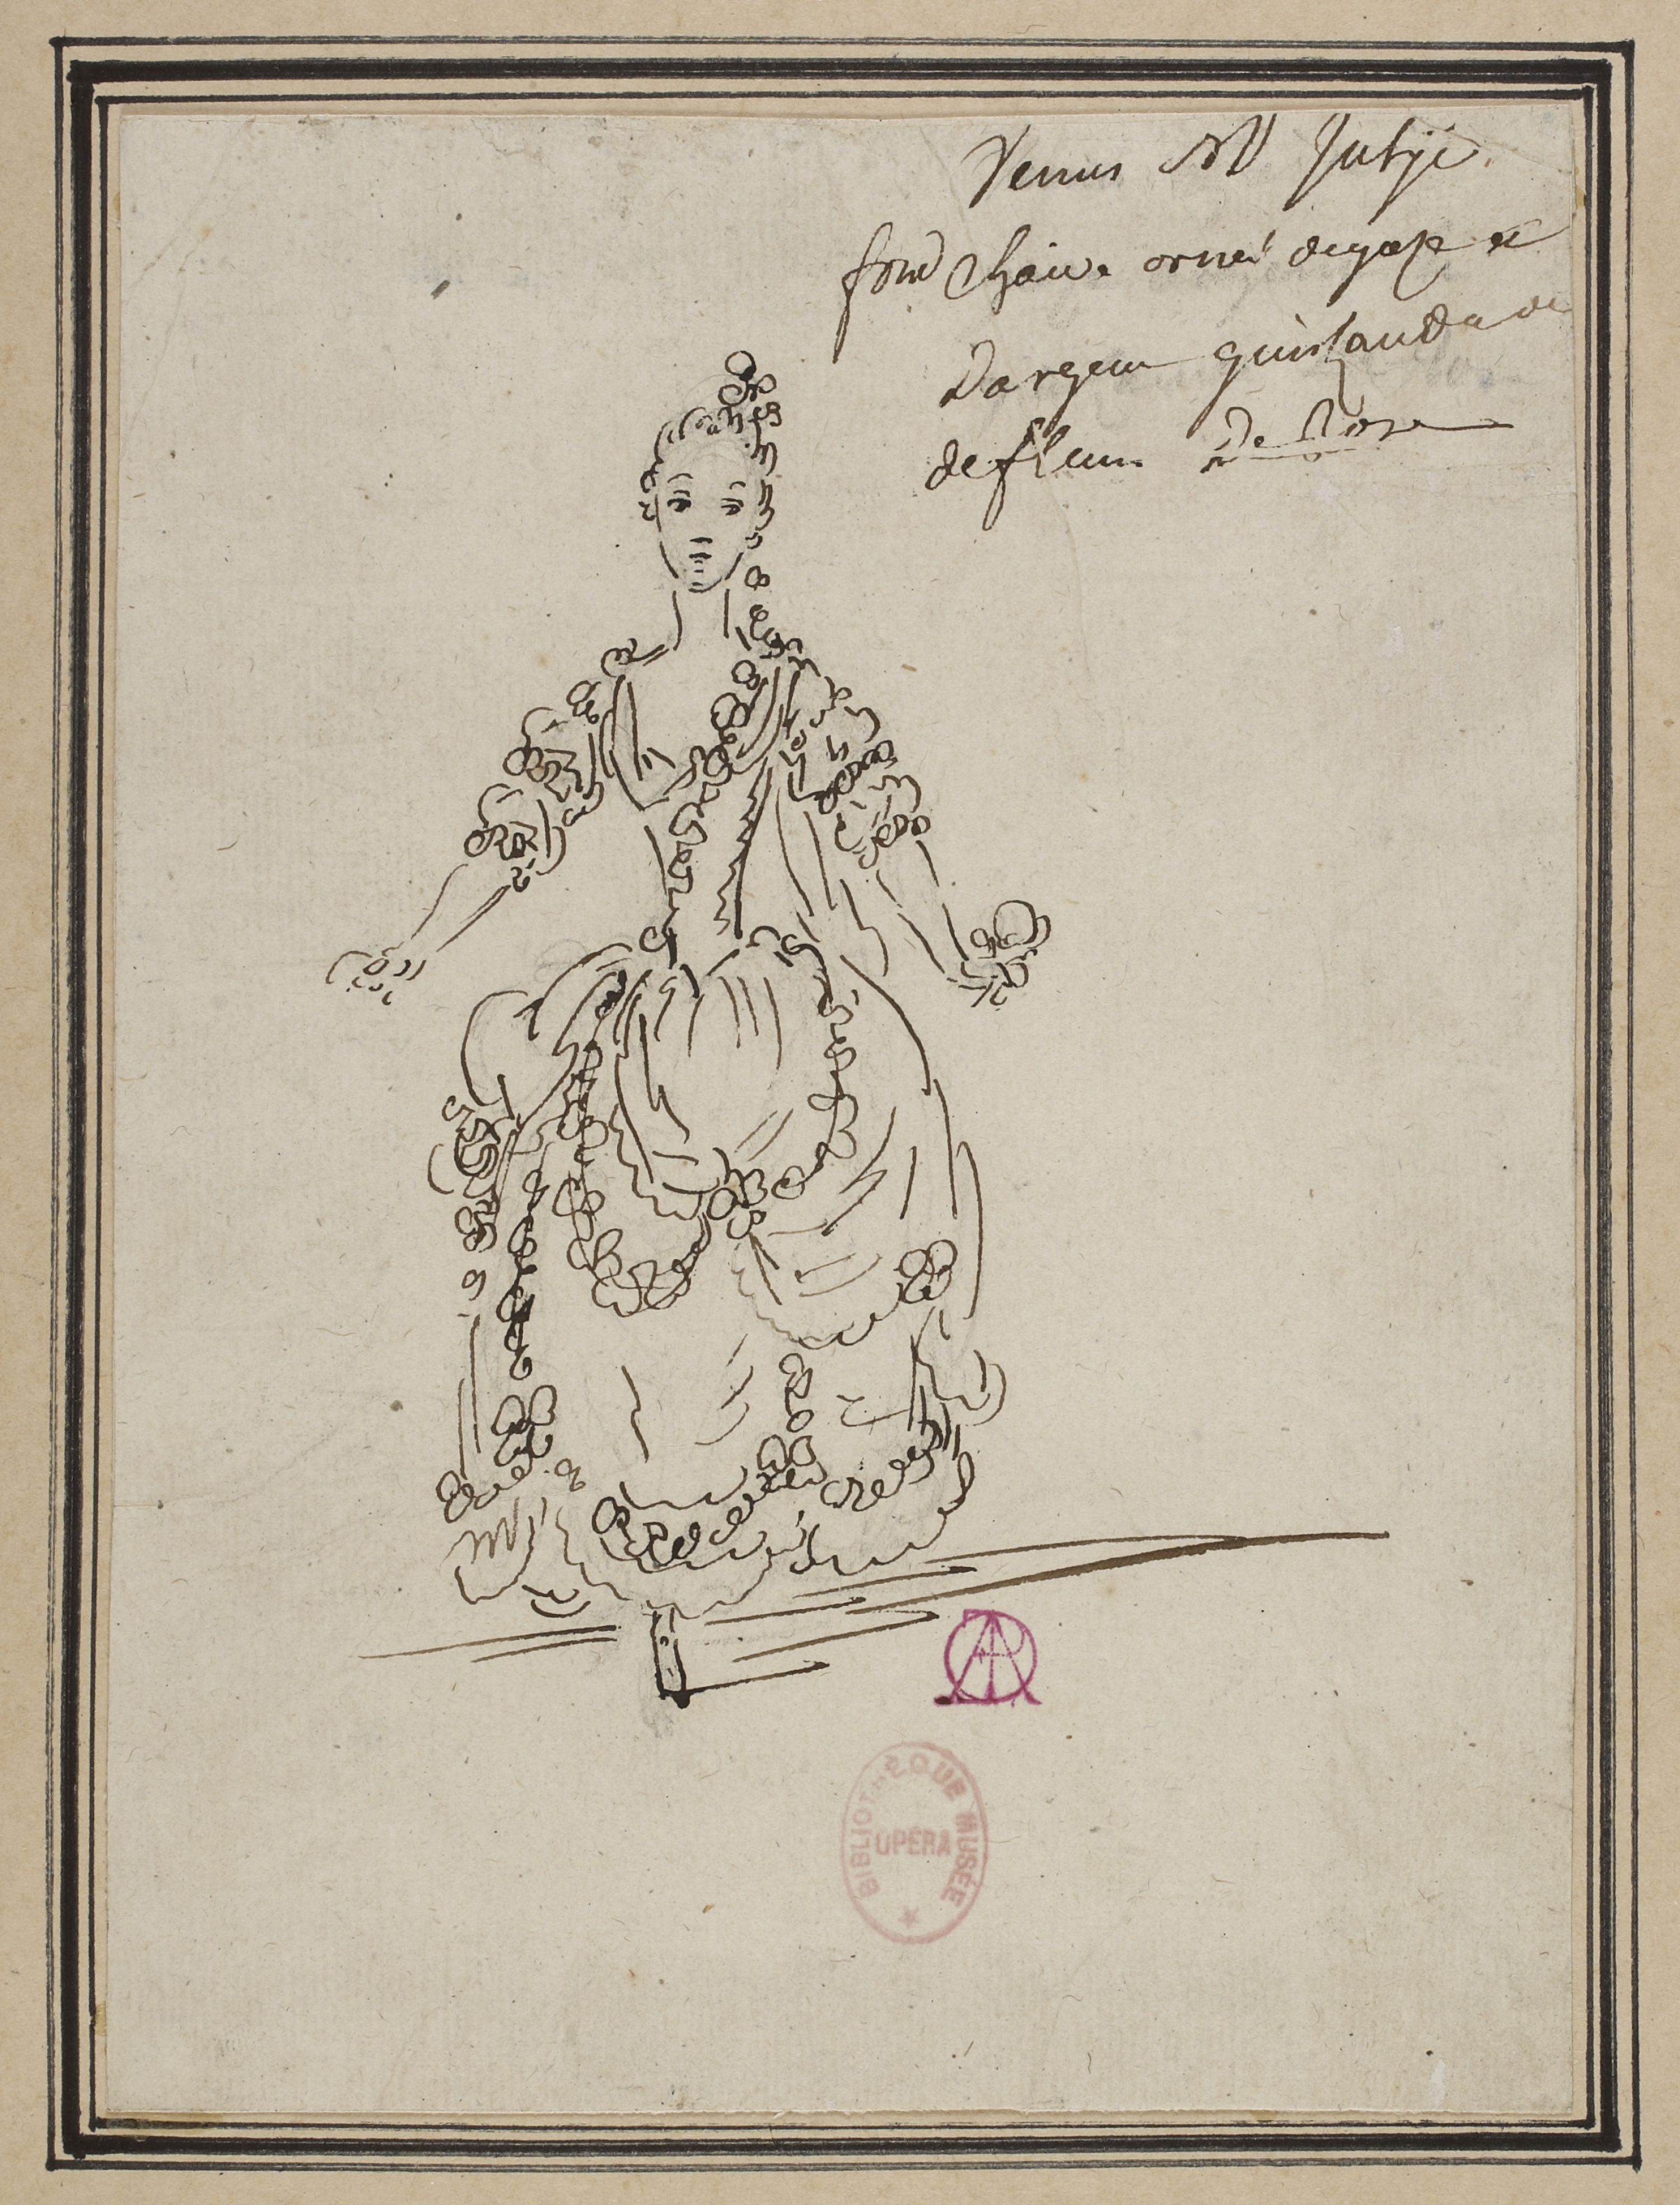 Venus Mlle Jutiji
fond Chaire orné degaze et
Dargent guirlande de
defleurs De Rose
BIBLIOTHEQUE MUSÉE
OPERA